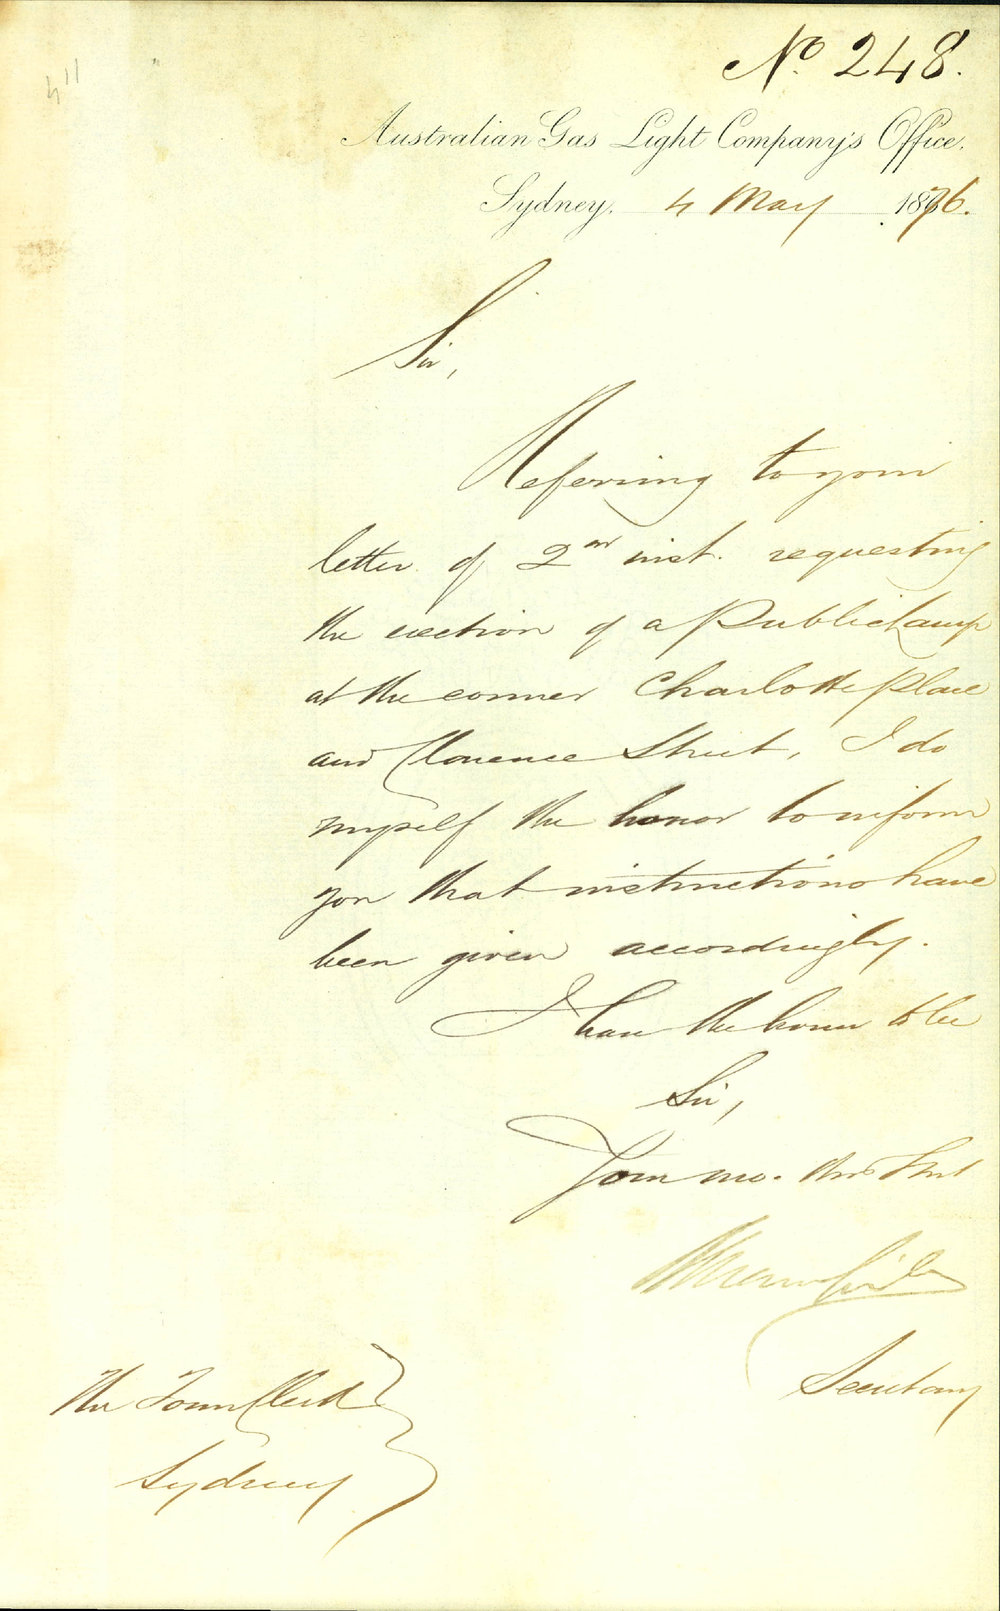 No 248.
4"
Australian Gas Light Company's Office.
Sydney, 4 May 1876.
Sir,
Referring to your
letter of 2nd inst. requesting
the erection of a Public Lamp
at the corner Charlotte Place
and Clarence Street, I do
myself the honor to inform
you that instructions have
been given accordingly.
I have the honor to be
Sir,
Your mo. Obt Servt
Secretary
The Town Clerk
Sydney